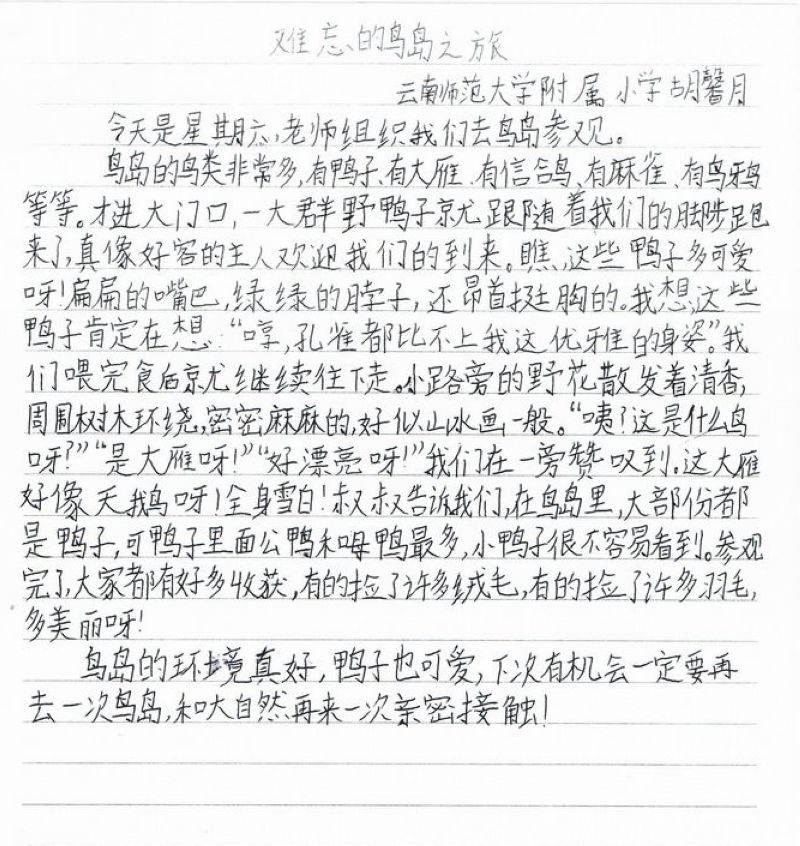 难忘的鸟岛之旅
云南师范大学附属小学胡馨月
今天是星期六,老师组织我们去鸟岛参观。
鸟岛的鸟类非常多,有鸭子、有大雁、有信鸽、有麻雀、有乌鸦
等等。才进大门口,一大群野鸭子就跟随着我们的脚步跑
来了,真像好客的主人欢迎我们的到来。瞧,这些鸭子多可爱
呀!扁扁的嘴巴,绿绿的脖子,还昂首挺胸的。我想,这些
鸭子肯定在想:“哼,孔雀都比不上我这优雅的身姿”。我
们喂完食后就继续往下走。小路旁的野花散发着清香,
周围树木环绕,密密麻麻的,好似山水画一般。“咦?这是什么鸟
呀?”“是大雁呀!”“好漂亮呀!”我们在一旁赞叹到。这大雁
好像天鹅呀!全身雪白!叔叔告诉我们,在鸟岛里,大部份都
是鸭子,可鸭子里面公鸭和母鸭最多,小鸭子很不容易看到。参观
完了,大家都有好多收获,有的捡了许多绒毛,有的捡了许多羽毛,
多美丽呀!
鸟岛的环境真好,鸭子也可爱,下次有机会一定要再
去一次鸟岛,和大自然再来一次亲密接触!